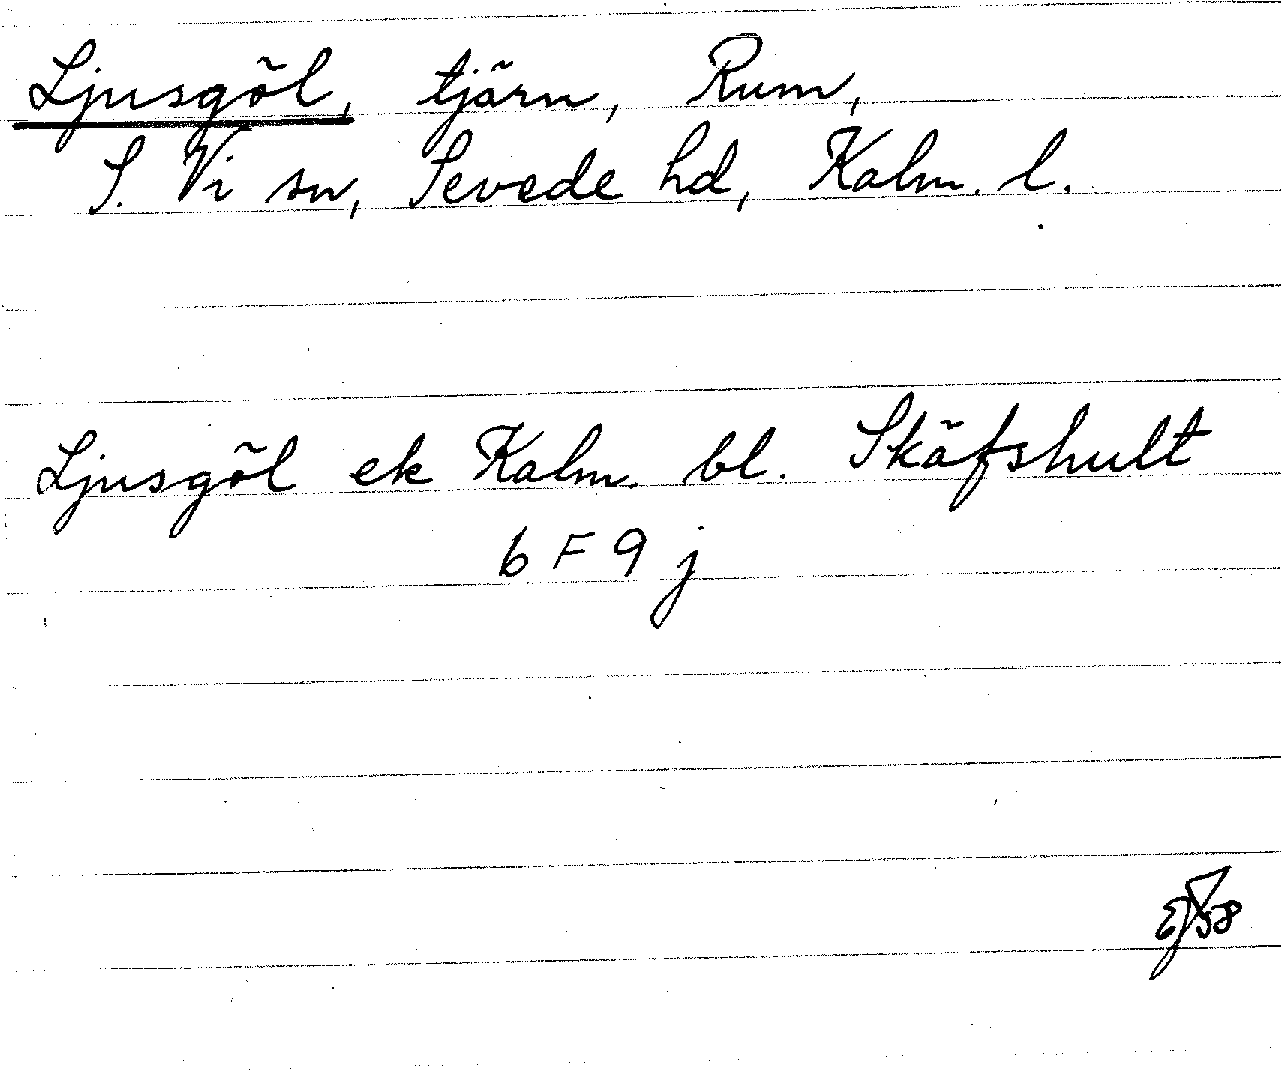 Ljusgöl, tjärn, Rum,
S. Vi sn, Sevede hd, Kalm. l.
Ljusgöl ek Kalm. bl. Skäfshult
6 F 9 j